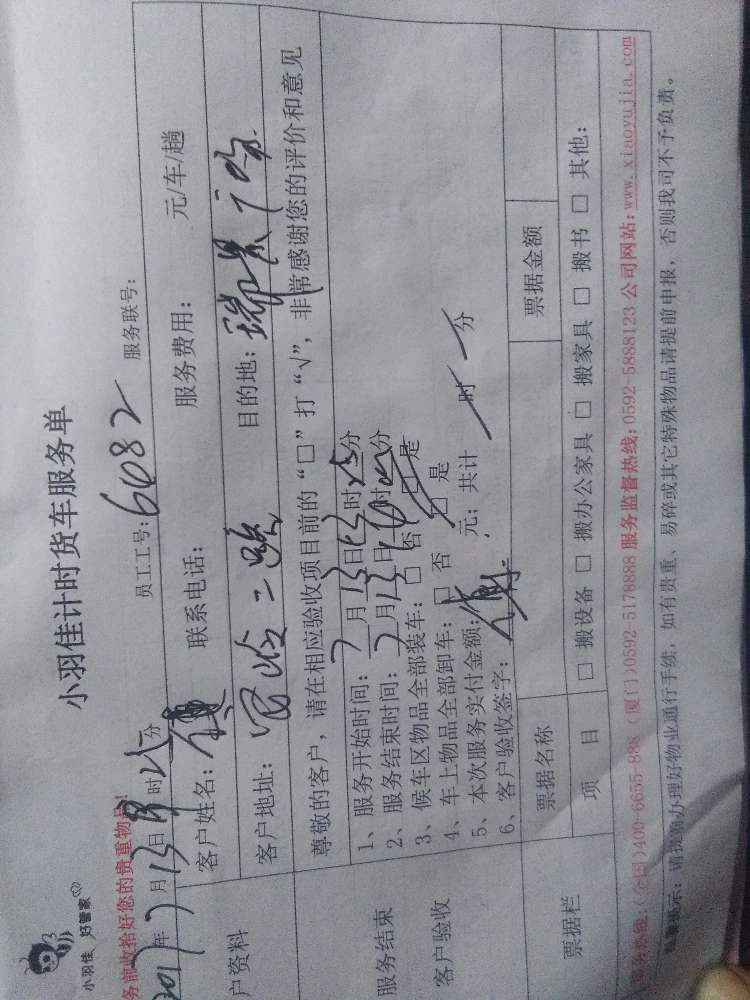 小羽佳 好管家
小羽佳计时货车服务单
务前收拾好您的贵重物品!
2017年7月13日 时 分 员工工号: 6082 服务联号:
户资料 客户姓名: 联系电话: 服务费用: 元/车/趟
客户地址: 二 目的地: 瑞景
尊敬的客户，请在相应验收项目前的“□”打“√”，非常感谢您的评价和意见
服务结束
客户验收
1、服务开始时间: 7月13日 时 分
2、服务结束时间: 7月13日 时 分
3、候车区物品全部装车: □ 否 □ 是
4、车上物品全部卸车: □ 否 □ 是
5、本次服务实付金额: 元; 共计 时 分
6、客户验收签字:
票据栏 票据名称 票据金额
项 目 □ 搬设备 □ 搬办公家具 □ 搬家具 □ 搬书 □ 其他:
务热线:(全国)400-6655-888 (厦门)0592-5178888 服务监督热线:0592-5888123 公司网站:www.xiaoyujia.com
提示: 请 办理好物业通行手续，如有贵重、易碎或其它特殊物品请提前申报，否则我司不予负责。